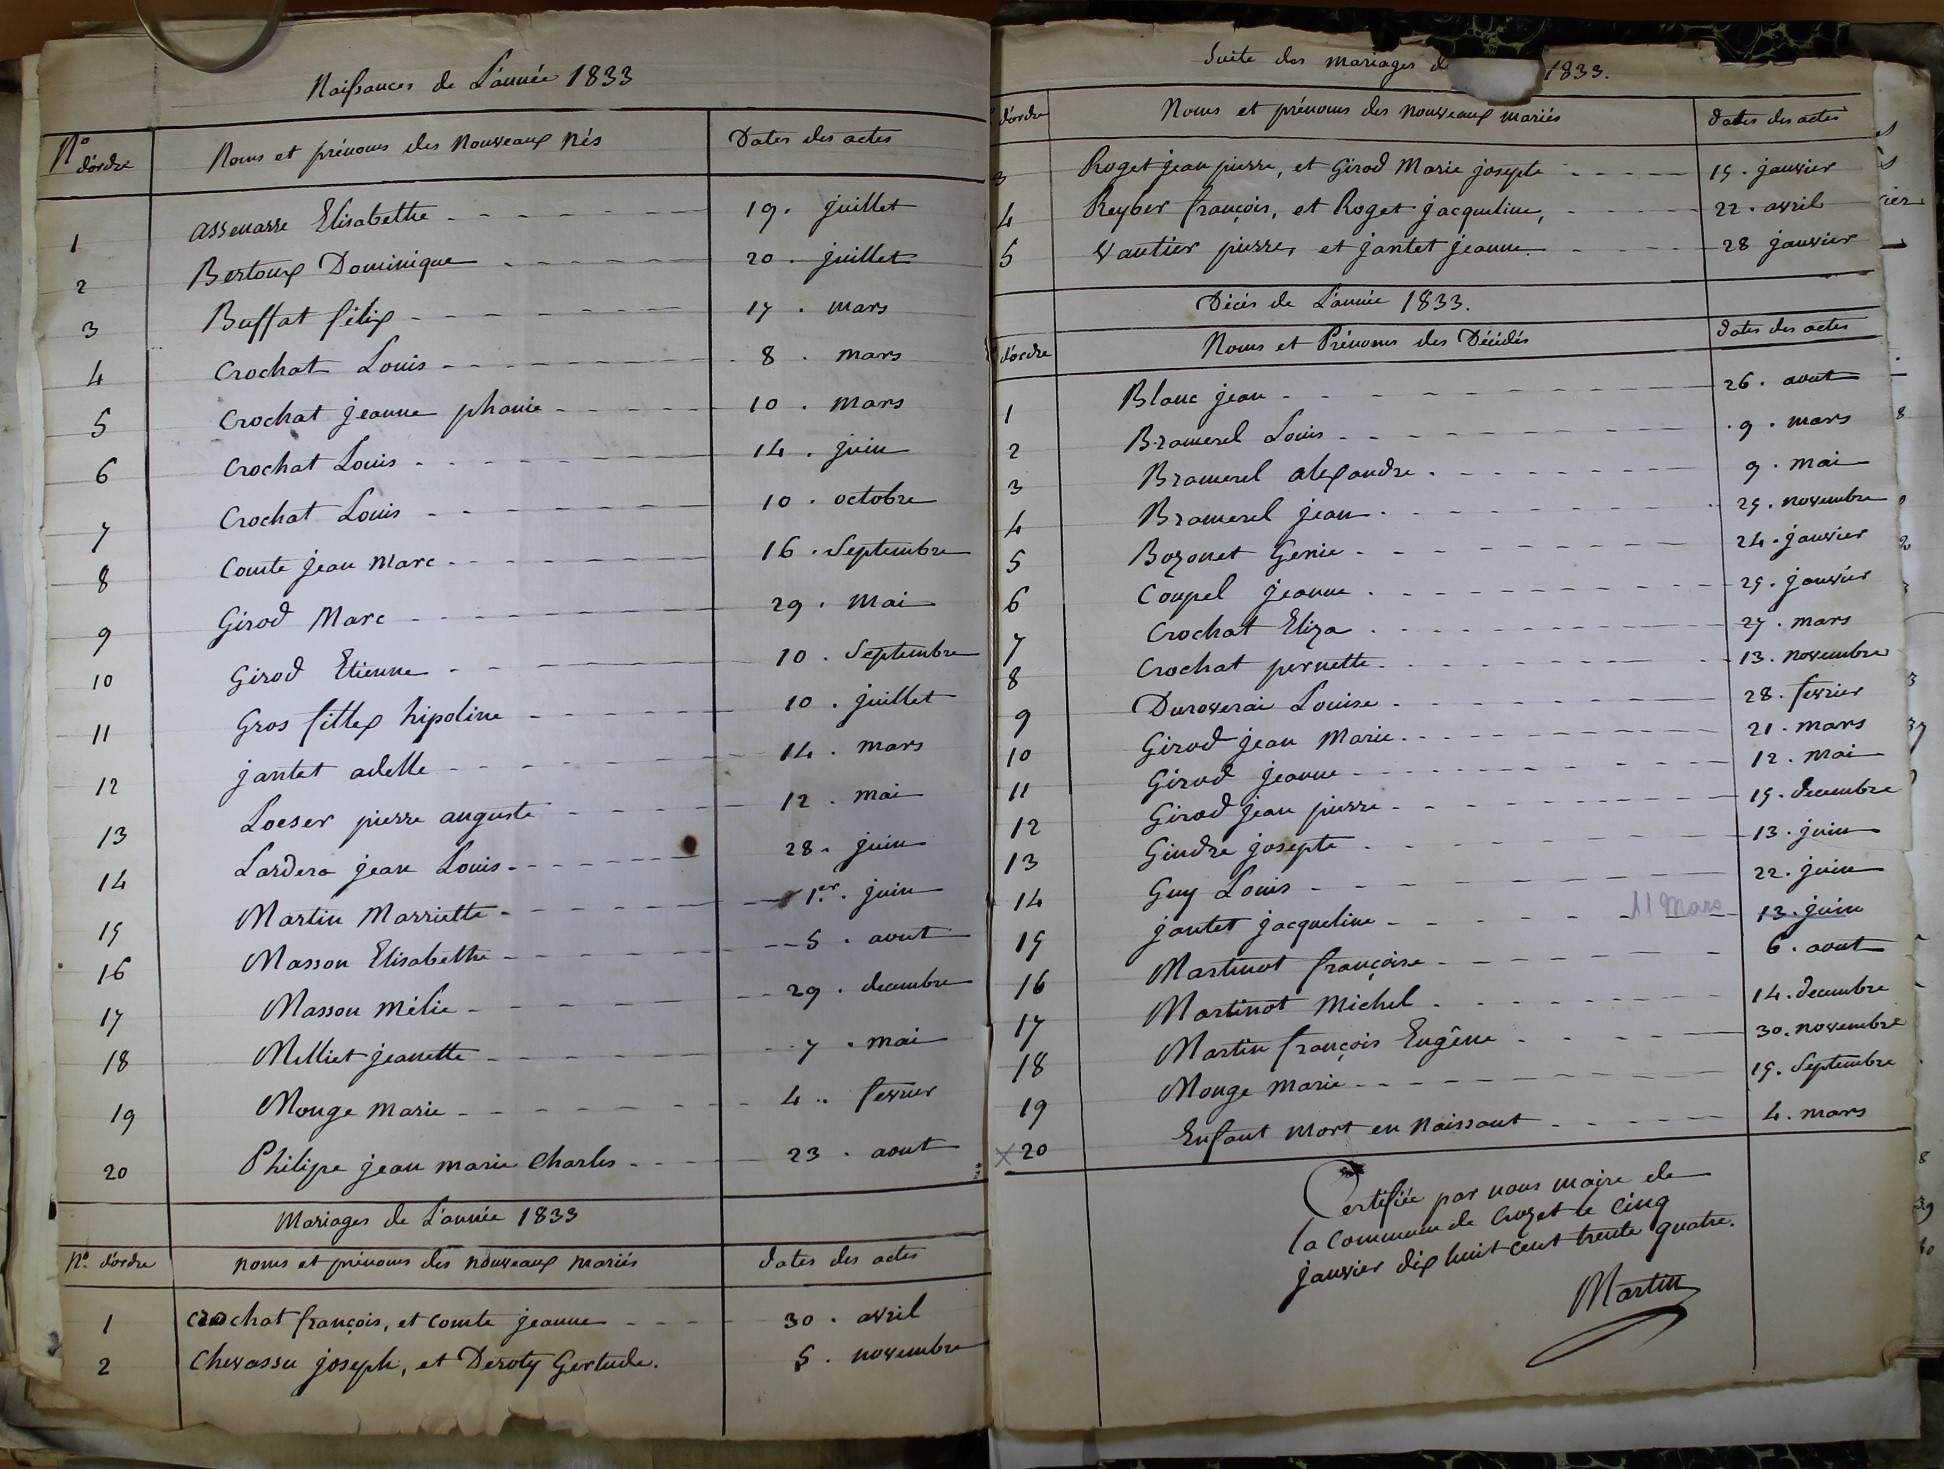 Naissances de L'année 1833
N° d'ordre Noms et prénoms des Nouveaux Nés Dates des actes
1 assenarre Elisabethe 19. juillet
2 Bertoux Dominique 20. juillet
3 Buffat félix 17. mars
4 Crochat Louis 8. mars
5 Crochat jeanne phanie 10. mars
6 Crochat Louis 14. juin
7 Crochat Louis 10. octobre
8 Comte jean Marc 16. Septembre
9 Girod Marc 29. Mai
10 Girod Etienne 10. Septembre
11 Gros fillex hipoline 10. juillet
12 jantet adelle 14. mars
13 Loeser pierre auguste 12. mai
14 Lardera jean Louis 28. juin
15 Martin Marriette 1er. juin
16 Masson Elisabethe 5. aout
17 Masson Mélie 29. decembre
18 Milliet jeanette 7. mai
19 Monge Marie 4. fevrier
20 Philipe jean marie Charles 23. aout
Mariages de L'année 1833
N°. d'ordre noms et prénoms des nouveaux mariés dates des actes
1 crochat françois, et comte jeanne 30. avril
2 Chevassu joseph, et Deroty Gertude. 5. novembre
Suite des mariages d 1833.
d'ordre Noms et prénoms des nouveaux mariés dates des actes
3 Roget jean pierre, et Girod Marie josepte 15. janvier
4 Reyber françois, et Roget jacqueline, 22. avril
5 Vautier pierre, et jantet jeanne. 28 janvier
Décès de L'année 1833.
d'ordre Noms et Prénoms des Décédés dates des actes
1 Blanc jean 26. aout
2 Bramerel Louis 9. mars
3 Bramerel alexandre 9. mai
4 Bramerel jean 25. novembre
5 Bozonet Genie 24. janvier
6 Coupel jeanne 25. janvier
7 Crochat Eliza 27. mars
8 Crochat pernette 13. novembre
9 Duroverai Louise 28. fevrier
10 Girod jean Marie 21. mars
11 Girod jeanne 12. mai
12 Girod jean pierre 15. decembre
13 Gindre josepte 13. juin
14 Guy Louis 22. juin
15 jantet jacqueline 11 Mars 13. juin
16 Martinot françoise 6. aout
17 Martinot Michel 14. decembre
18 Martin françois Eugêne 30. novembre
19 Monge Marie 15. Septembre
x 20 Enfant Mort en Naissant 4. mars
Certifiée par nous maire de
la commune de Crozet le Cinq
janvier dix huit cent trente quatre.
Martin